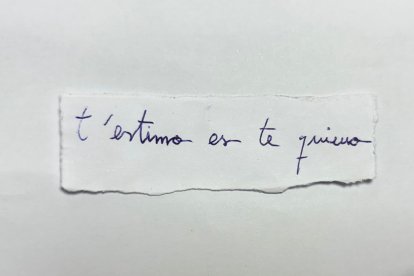 t'estimo es te quiero